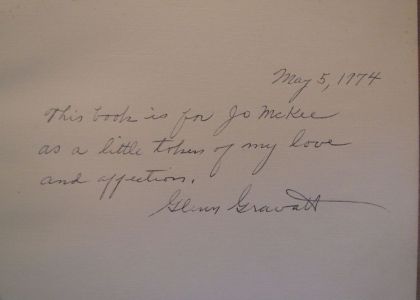 May 5, 1974
This book is for Jo McKee
as a little token of my love
and affection.
Glenn Gravatt